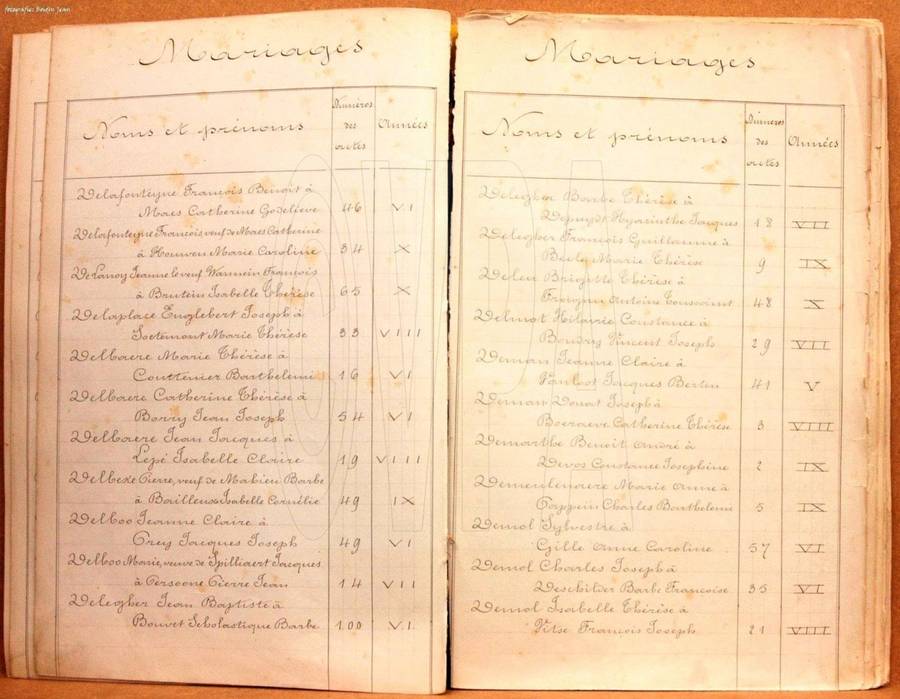 fotografies Boudin Jean
Mariages
Noms et prénoms
Numéros des actes
Années
Delafonteyne François Benoit à
Maes Catherine Godelieve 46 VI
Delafonteyne François, veuf de Maes Catherine
à Houwen Marie Caroline 34 X
De Lanoy Jeanne le veuf Wannein François
à Brutein Isabelle Thérèse 65 X
Delaplace Englebert Joseph à
Soetemont Marie Thérèse 33 VIII
Delbaere Marie Thérèse à
Couttenier Barthelemi 16 VI
Delbaere Catherine Thérèse à
Borry Jean Joseph 54 VI
Delbaere Jean Jacques à
Lepé Isabelle Claire 19 VIII
Delbeke Pierre, veuf de Mahieu Barbe
à Bailleux Isabelle Cornélie 49 IX
Delboo Jeanne Claire à
Crey Jacques Joseph 49 VI
Delboo Marie, veuve de Spilliaert Jacques
à Persoone Pierre Jean 14 VII
Delegher Jean Baptiste à
Bouvet Scholastique Barbe 100 VI
Mariages
Noms et prénoms
Numéros des actes
Années
Delegher Barbe Thérèse à
Depuydt Hyacinthe Jacques 18 VII
Delegher François Guillaume à
Beele Marie Thérèse 9 IX
Deleu Brigitte Thérèse à
Antoine Toussaint 48 X
Delmot Hilairie Constance à
Boudry Vincent Joseph 29 VII
Deman Jeanne Claire à
Vanloot Jacques Bertin 41 V
Deman Donat Joseph à
Boeraeve Catherine Thérèse 3 VIII
Demarthe Benoit André à
Devos Constance Josephine 2 IX
Demeulenaere Marie Anne à
Coppein Charles Barthelemi 5 IX
Demol Sylvestre à
Gille Anne Caroline 57 VI
Demol Charles Joseph à
Deschilder Barbe Françoise 35 VI
Demol Isabelle Thérèse à
Vitse François Joseph 21 VIII